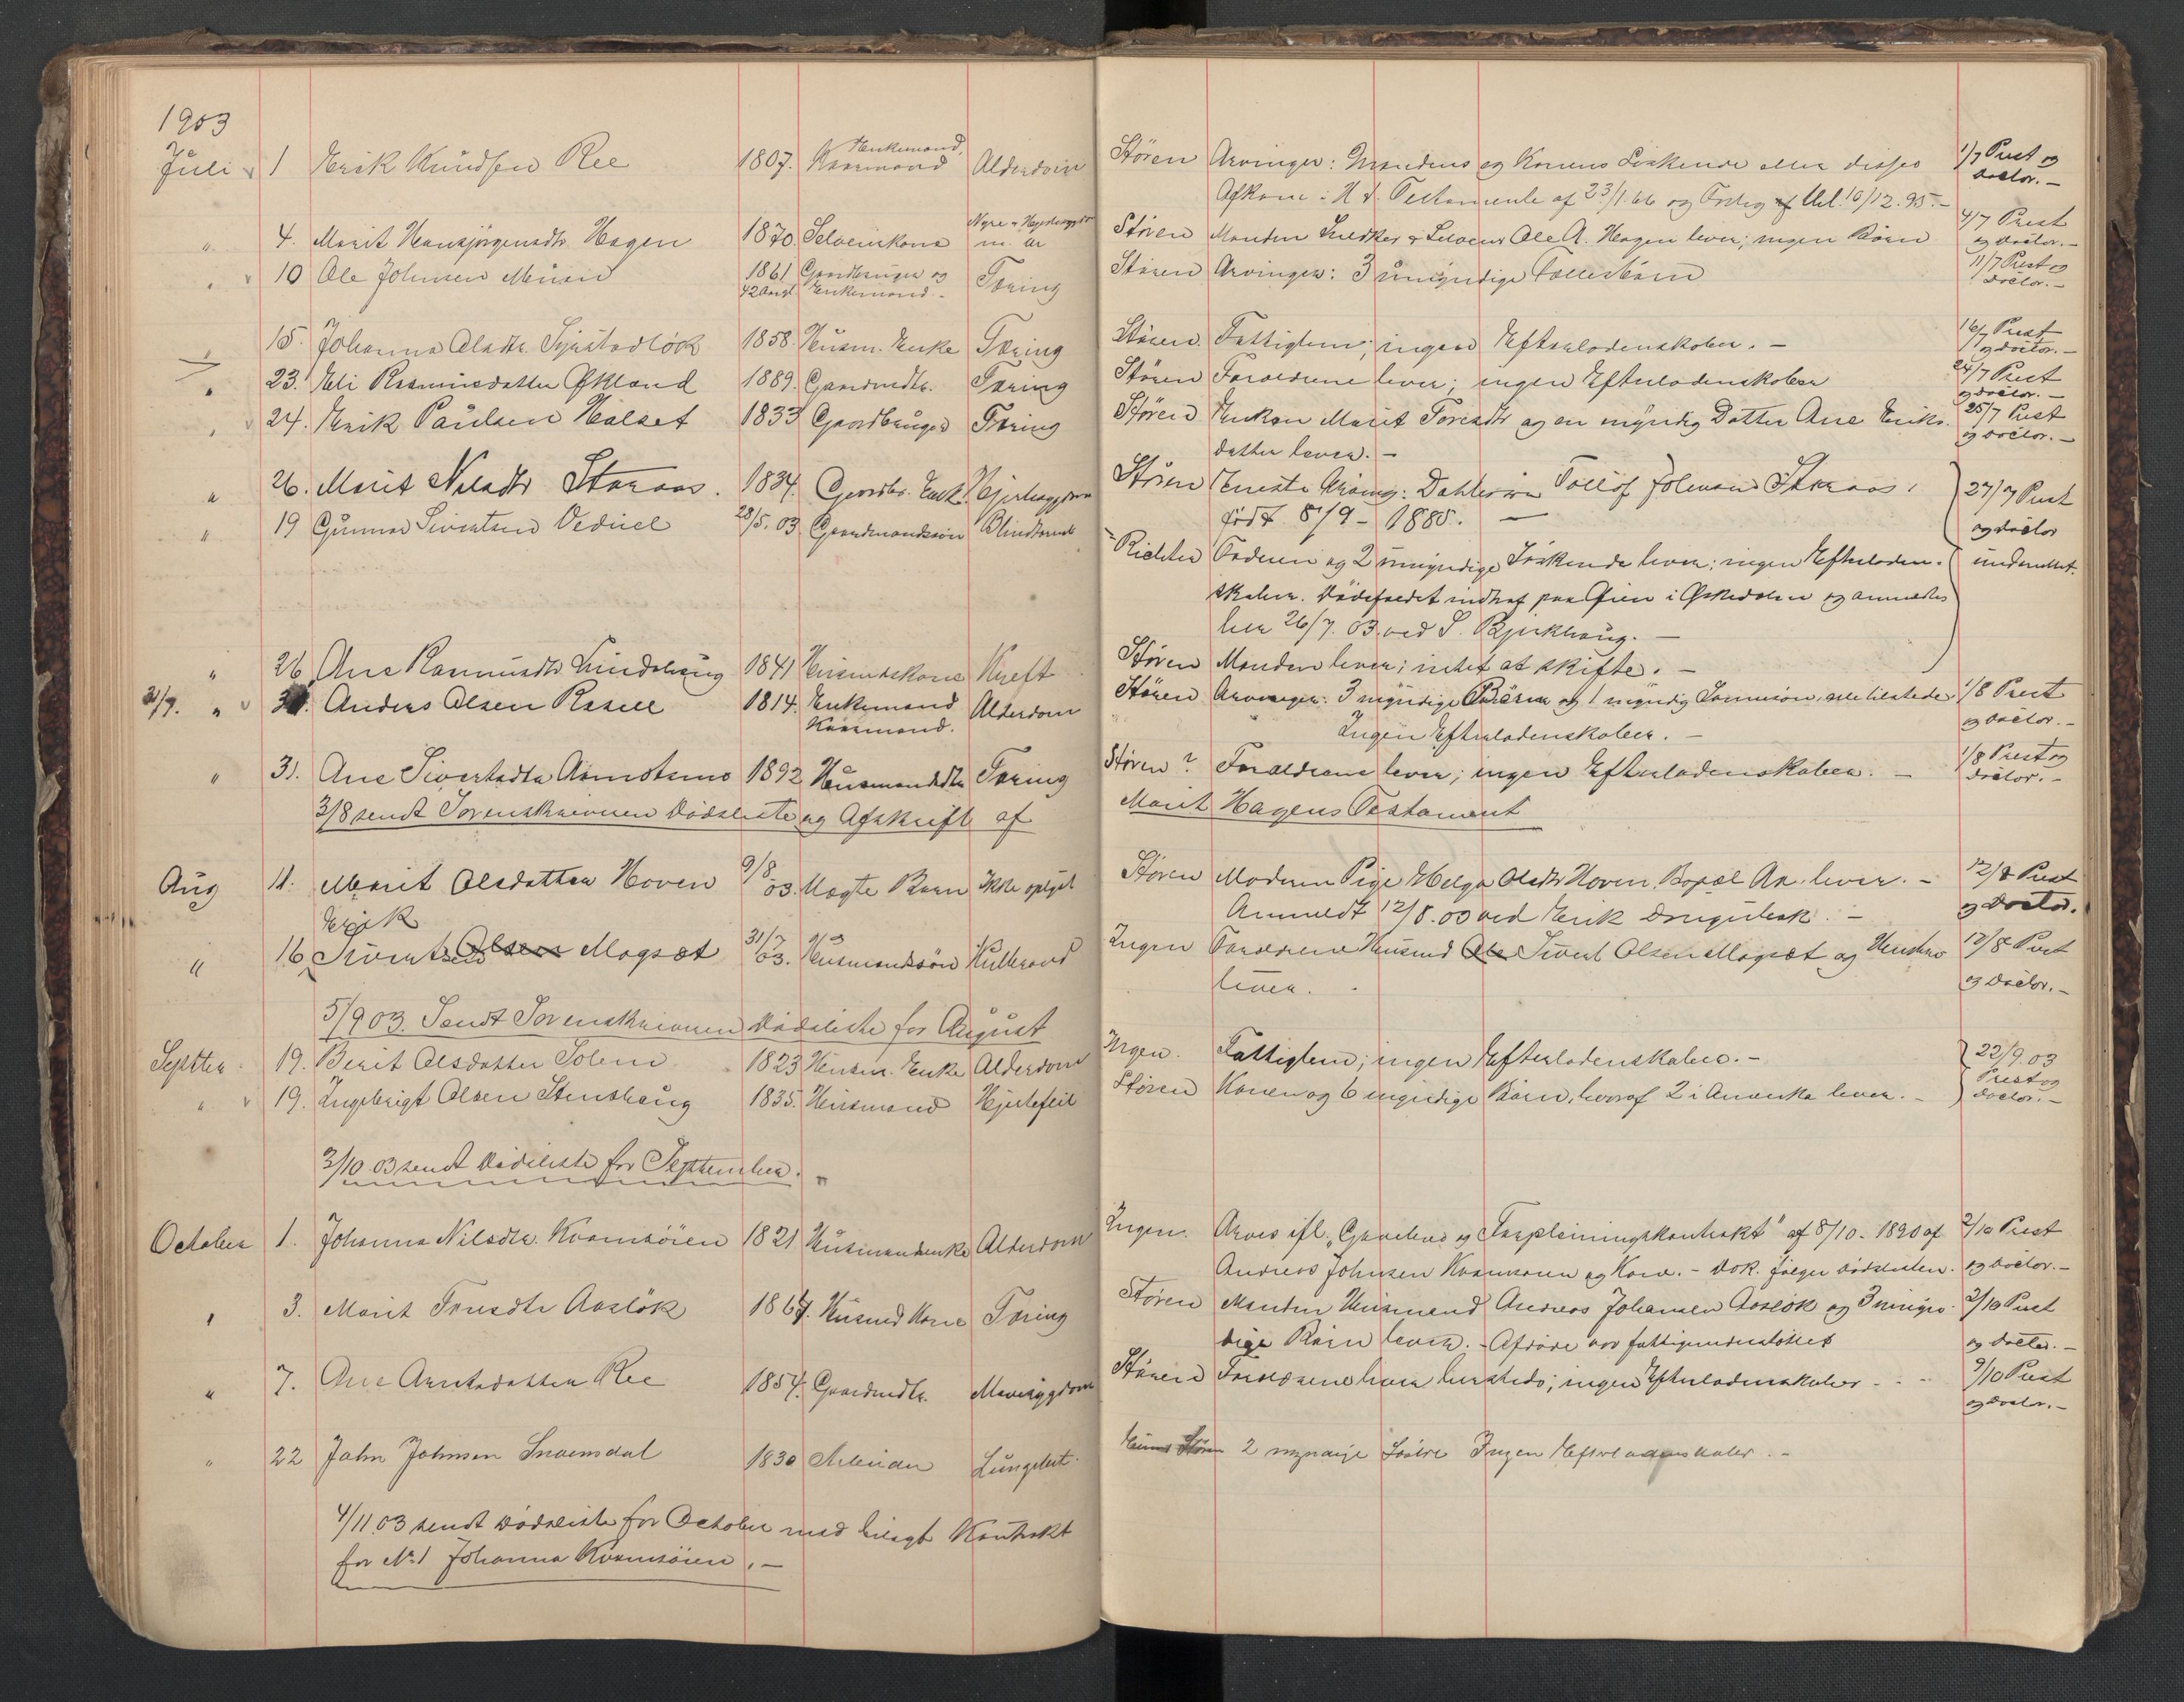 1903
Juli 1 Erik Knudsen Ree 1807. Enkemand, Kaarmand Alderdom Støren Arvinger: Mandens og Konens Søskende eller disses 1/7 Prest og Doctor.-
Afkom i H. t. Testamente af 23/1.66 og 10/12.95.-
" 4. Marit Hansjørgensdtr. Hagen 1870. Selveierkone Nyre & Hjertesygdom m. m. Støren Manden Snedker & Selveier Ole A. Hagen lever; ingen Børn 4/7 Prest og Doctor.-
" 10 Ole Johnsen Moan 1861 42 Aar gl. Gaardbruger og Enkemand. Tæring Støren Arvinger: 3 umyndige Fællesbørn 11/7 Prest og Doctor.-
" 15. Johanna Olsdtr. 1858. Husm. Enke Tæring Støren Fattiglem; ingen Efterladenskaber.- 16/7 Prest og Doctor.-
" 23. Eli Rasmusdatter Økland 1889. Gaardmdtr. Tæring Støren Forældrene lever; ingen Efterladenskaber 24/7 Prest og Doctor.-
" 24. Erik Paulsen Halset 1833 Gaardbruger Tæring Støren Enken Marit Toresdtr og en myndig Datter Ane Eriks- 25/7 Prest og Doctor.-
datter lever.-
" 26. Marit Nilsdtr Storaas. 1834. Gaardbr. Enke Hjertesygdom Støren Eneste Arving: Dattersøn Tollof Johnsen Storaas, 27/7 Prest og Doctor underrettet.
født 8/9-1880.-
" 19 Gunnar Sivertsen 28/5.03 Gaardmandssøn Blindtarmb Faderen og 2 umyndige Søskende lever; ingen Efterladen-
skaber. Dødsfaldet indtraf paa Øien i Ørkedalen og anmeldes
her 26/7.03 ved S. Bjerkhaug.-
" 26 Ane Rasmusdtr Lindehaug 1841 Husmdskone Kreft Støren Manden lever; intet at skifte.-
31/7. " 31. Anders Olsen 1814. Enkemand Kaarmand. Alderdom Støren Arvinger: 3 myndige Børn og 1 myndig Sønnesøn, alle tilstede 1/8 Prest og Doctor.-
Ingen Efterladenskaber.-
" 31. Ane Sivertsdtr 1892 Husmandsdtr Tæring Støren? Forældrene lever; ingen Efterladenskaber.- 1/8 Prest og Doctor.-
3/8 sendt Sorenskriveren Dødsliste og Afskrift af Marit Hagens Testament
Aug 11. Marit Olsdatter Hoven 9/8 03. Uægte Barn Ikke oplyst Støren Moderen Pige Helga Olsdtr Hoven, lever.- 12/8 Prest og Doctor.
Anmeldt 12/8.03 ved Erik
Erik
" 16 Sivertsen Olsen Mogset 31/7 03. Husmandssøn Ingen Forældrene Husmd Ole Sivert Olsen Mogset og Hustru 17/8 Prest og Doctor.-
lever.
5/9 03. Sendt Sorenskriveren Dødsliste for August
Septbr. 19. Berit Olsdatter Solem 1823 Husm. Enke Alderdom Ingen. Fattiglem; ingen Efterladenskaber.- 22/9.03 Prest og Doctor.-
" 19. Ingebrigt Olsen Stenshaug 1835. Husmand Hjertefeil Støren Konen og 6 myndige Børn, hvoraf 2 i Amerika lever.-
3/10.03 sendt Dødsliste for September.
October 1. Johanna Nilsdtr. Kvamsøien 1821 Husmandsenke Alderdom Ingen. Arves ifl. "Gavebrev og Forpleiningskontrakt" af 8/10-1890 af 2/10 Prest og Doctor.-
Andreas Johnsen Kvamsøien og Kone.- Dok. følger Dødslisten.
" 3. Marit Aasløk 1867. Husmd Kone Tæring Støren Manden Husmand Andreas Johansen Aasløk og 3 umyn- 3/10 Prest og Doctor.-
dige Børn lever.- Afdøde var fattigunderstøttet
" 7. Ane Arntsdatter Ree 1854. Gaardmdtr. Mavesygdom Støren Forældrene lever hersteds; ingen Efterladenskaber.- 9/10 Prest og Doctor.-
" 22 John Johnsen Snoensdal 1830 Arbeider Lungebet. Støren 2 myndige Søstre Ingen Efterladenskaber.-
4/11.03 sendt Dødsliste for October med bilagt Kontrakt
for No 1 Johanna Kvamsøien.-